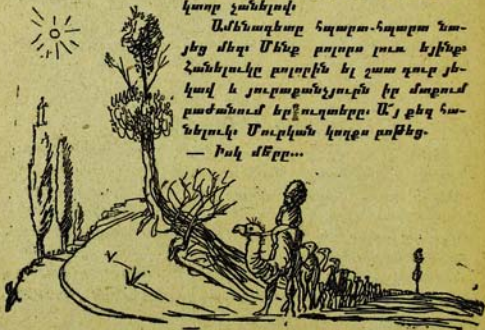 կտոր չանելով։
Ամենագետը հպարտ-հպարտ նա-
յեց մեզ։ Մենք բոլորս լուռ եյինք։
Հանելուկը բոլորին ել շատ դուր յե-
կավ և յուրաքանչյուրն իր մտքում
բաժանում եր ուղտերը։ Ա՜յ քեզ հա-
նելուկ։ Մուրկան կողքս բոթեց։
— Իսկ մե՞րը...